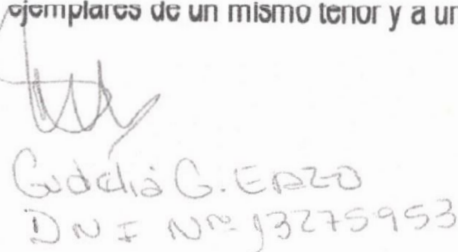 ejemplares de un mismo tenor y a un
G. ERZO
DNI Nro 13275953